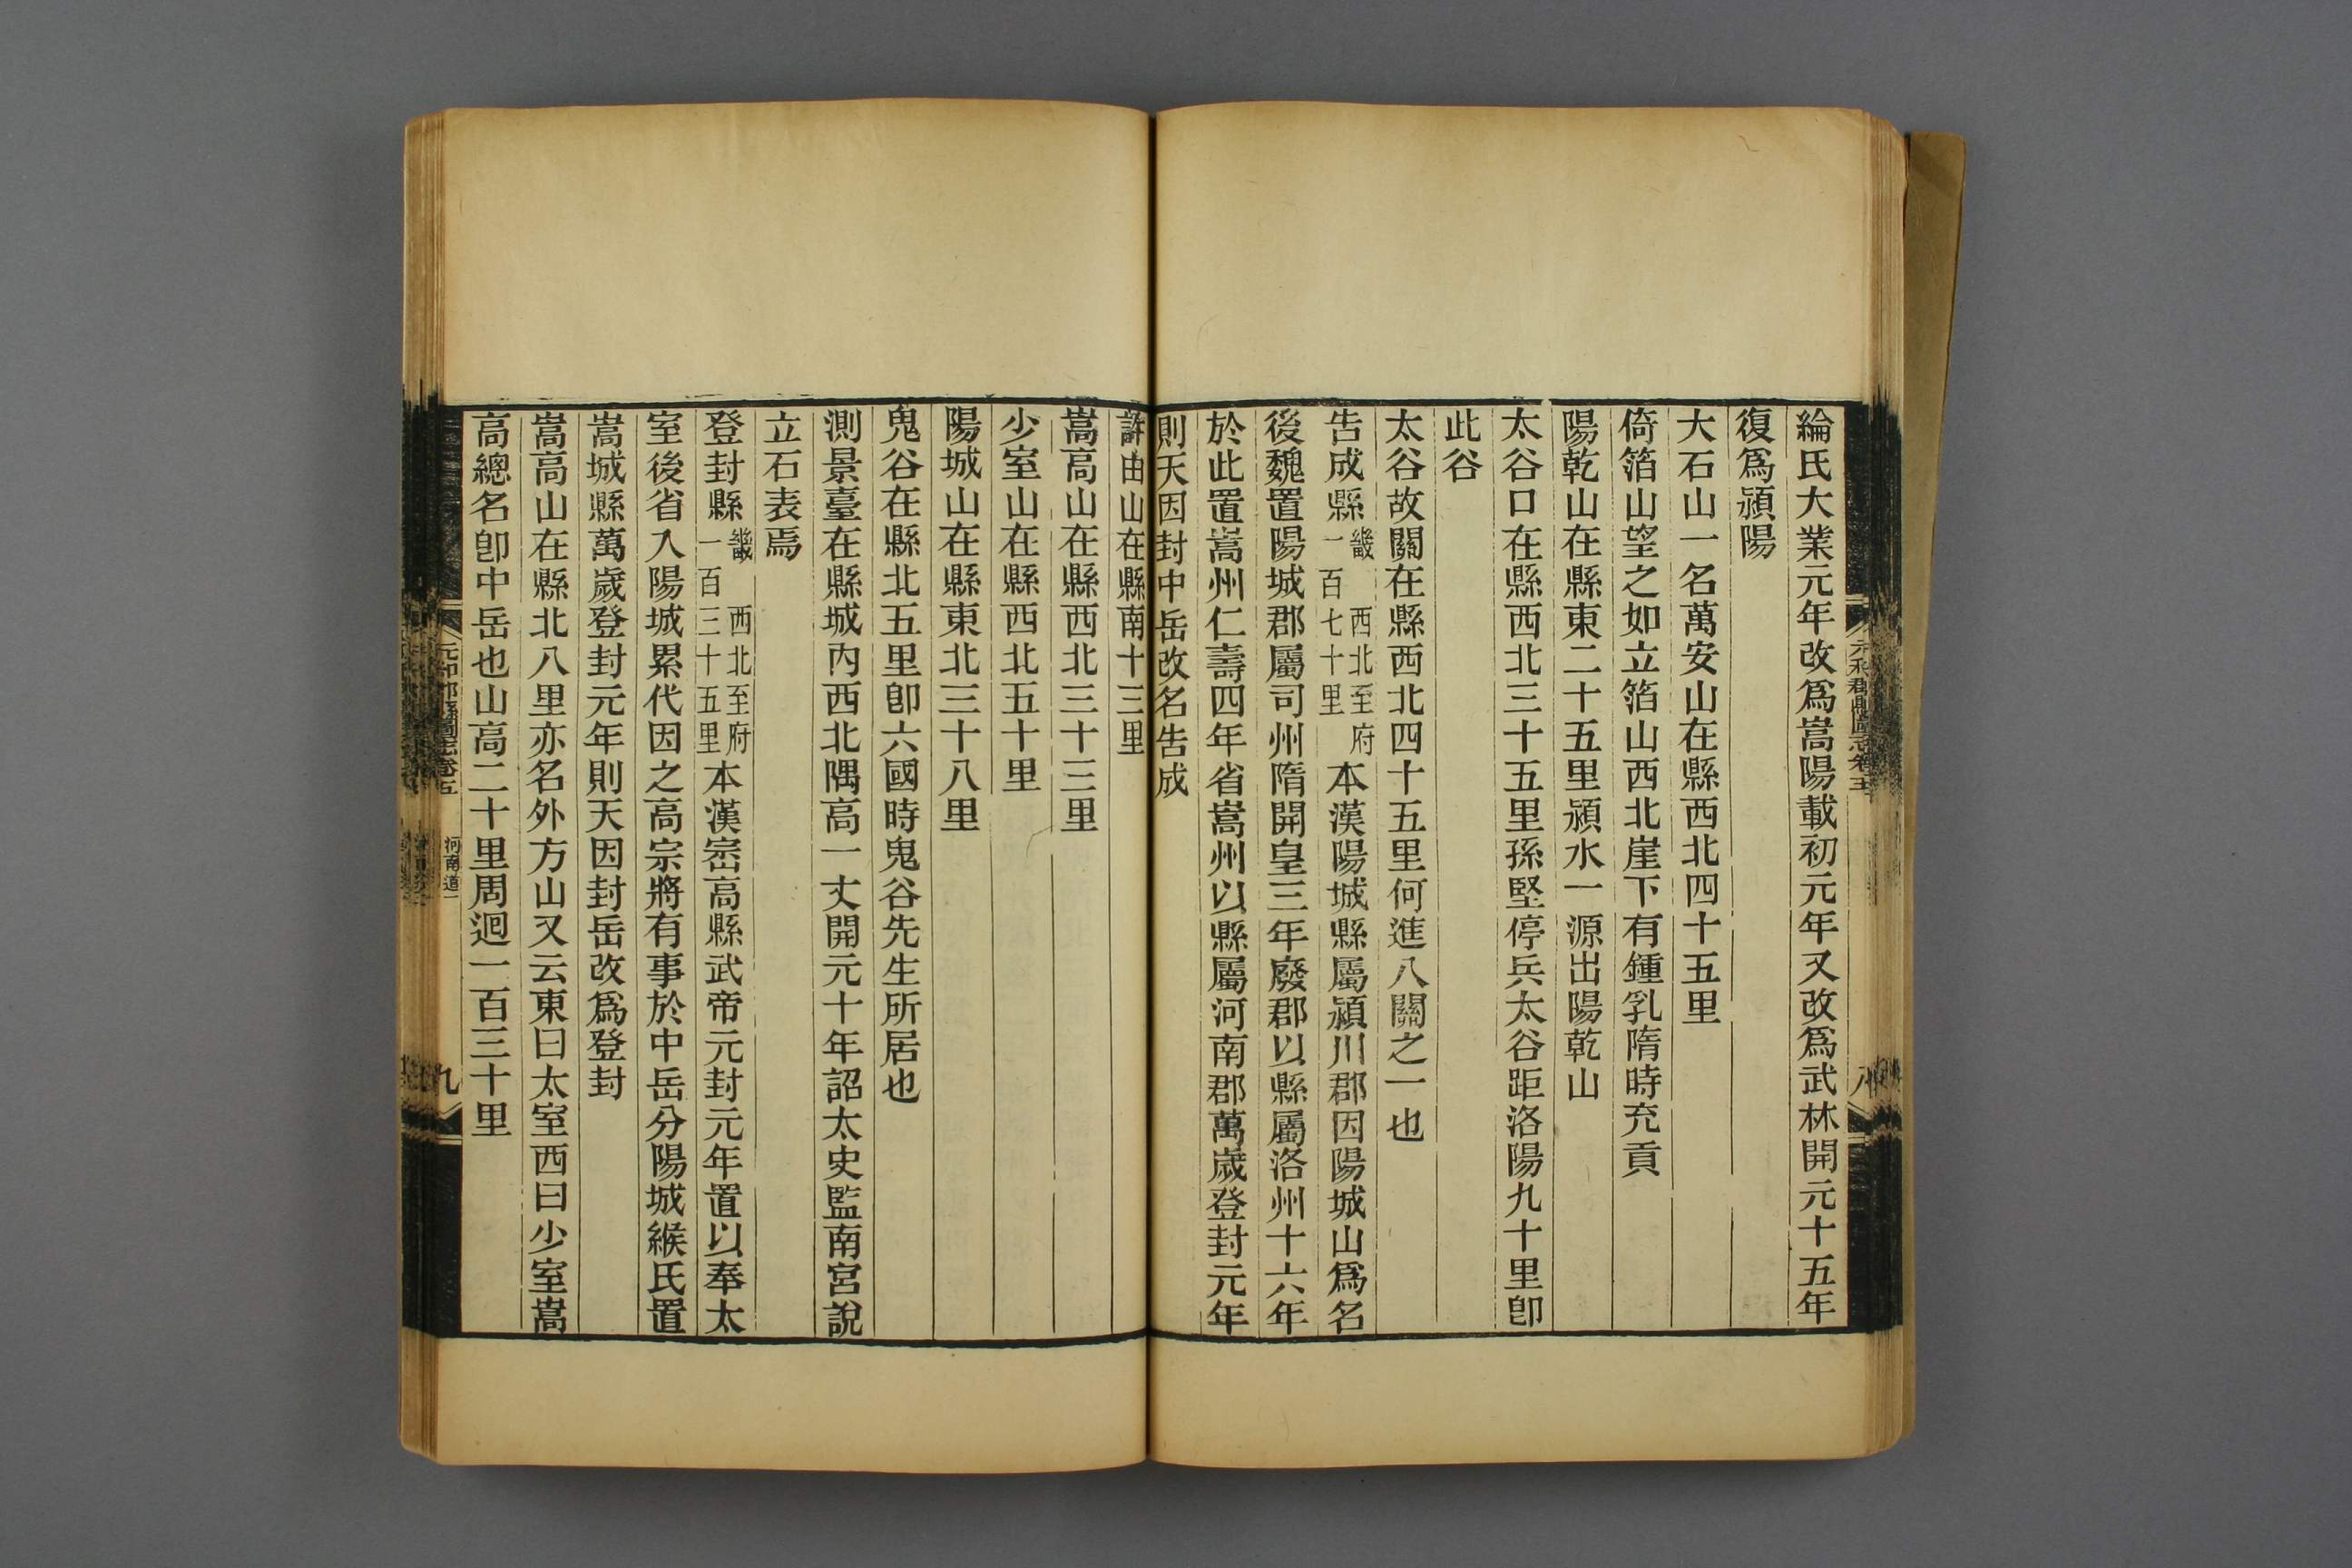 綸氏大業元年改爲嵩陽載初元年又改爲武林開元十五年
復爲潁陽
大石山一名萬安山在縣西北四十五里
倚箔山望之如立箔山西北崖下有鍾乳隋時充貢
陽乾山在縣東二十五里潁水一源出陽乾山
太谷口在縣西北三十五里孫堅停兵太谷距洛陽九十里卽
此谷
太谷故關在縣西北四十五里何進八關之一也
告成縣畿 西北至府一百七十里本漢陽城縣屬潁川郡因陽城山爲名
後魏置陽城郡屬司州隋開皇三年廢郡以縣屬洛州十六年
於此置嵩州仁壽四年省嵩州以縣屬河南郡萬歲登封元年
則天因封中岳改名告成
許由山在縣南十三里
嵩高山在縣西北三十三里
少室山在縣西北五十里
陽城山在縣東北三十八里
鬼谷在縣北五里卽六國時鬼谷先生所居也
測景臺在縣城內西北隅高一丈開元十年詔太史監南宮說
立石表焉
登封縣畿 西北至府一百三十五里本漢崈高縣武帝元封元年置以奉太
室後省入陽城累代因之高宗將有事於中岳分陽城緱氏置
嵩城縣萬歲登封元年則天因封岳改爲登封
嵩高山在縣北八里亦名外方山又云東曰太室西曰少室嵩
高總名卽中岳也山高二十里周迴一百三十里
元和郡縣圖志卷五
八
元和郡縣圖志卷五
河南道一
九